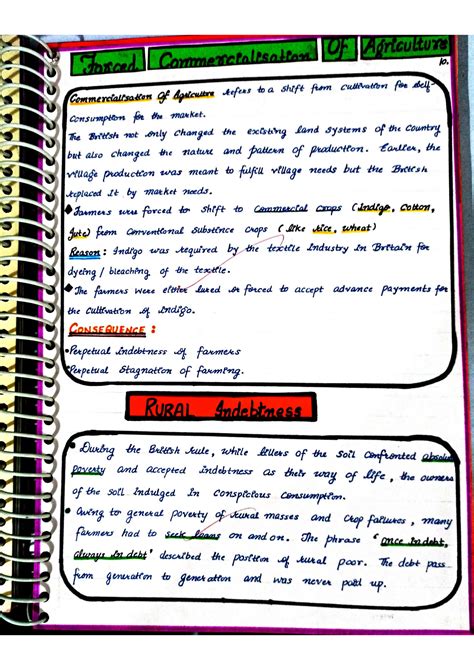 Forced Commercialisation Of Agriculture
10.
Commercialisation Of Agriculture refers to a shift from cultivation for self-
consumption for the market.
The British not only changed the existing land systems of the country
but also changed the nature and pattern of production. Earlier, the
village production was meant to fulfill village needs but the British
replaced it by market needs.
Farmers were forced to shift to commercial crops (Indigo, Cotton,
Jute) from conventional substince crops (like rice, wheat)
Reason: Indigo was required by the textile industry in Britain for
dyeing / bleaching of the textile.
The farmers were either lured or forced to accept advance payments for
the cultivation of indigo.
CONSEQUENCE :
Perpetual indebtness of farmers
Perpetual Stagnation of farming.
RURAL Indebtness
During the British rule, while tillers of the soil confronted absolute
poverty and accepted indebtness as their way of life, the owners
of the soil indulged in conspicious consumption.
Owing to general poverty of rural masses and crop failures, many
farmers had to seek loans on and on. The phrase 'once in debt,
always in debt' described the position of rural poor. The debt pass-
from generation to generation and was never paid up.